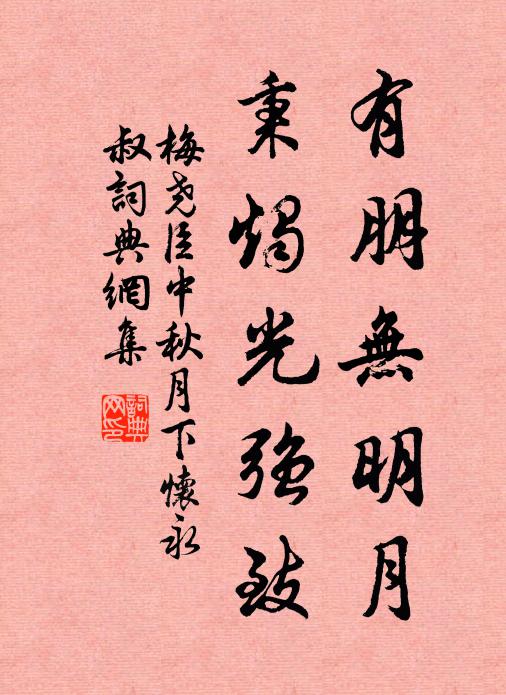 有朋無明月
秉燭光強致
梅尧臣中秋月下懷永
叔詞典網集
詞典
网印